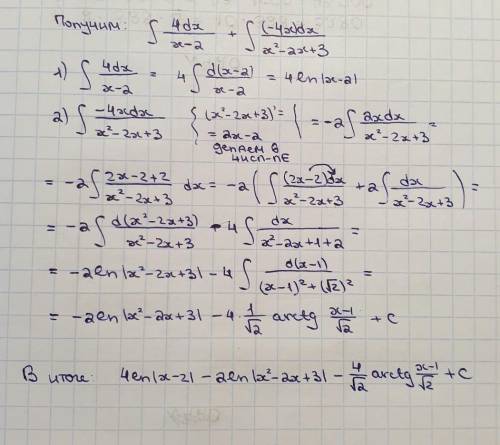 Получим: ∫ 4dx/(x-2) + ∫ (-4x)dx/(x²-2x+3)
1) ∫ 4dx/(x-2) = 4∫ d(x-2)/(x-2) = 4 ln|x-2|
2) ∫ -4xdx/(x²-2x+3) { (x²-2x+3)' = = 2x-2 делаем в числ-ле { = -2∫ 2xdx/(x²-2x+3) =
= -2∫ (2x-2+2)/(x²-2x+3) dx = -2( ∫ (2x-2)dx/(x²-2x+3) + 2∫ dx/(x²-2x+3) ) =
= -2∫ d(x²-2x+3)/(x²-2x+3) - 4∫ dx/(x²-2x+1+2) =
= -2ln|x²-2x+3| - 4∫ d(x-1)/((x-1)²+(√2)²) =
= -2ln|x²-2x+3| - 4·1/√2 arctg (x-1)/√2 + C
В итоге: 4ln|x-2| - 2ln|x²-2x+3| - 4/√2 arctg (x-1)/√2 + C